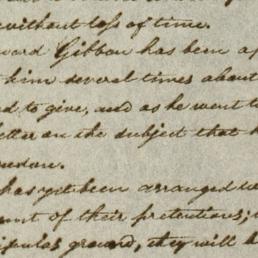 without loss of time.
ward Gibbon has been ap
him several times about
d to give, and as he went to
etter on the subject that h
has yet been arranged
unt of their pretentions;
ground, they will b